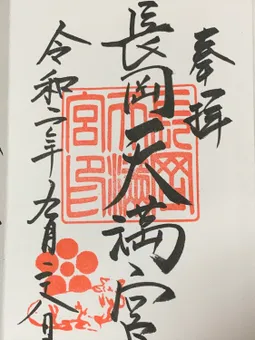 奉拝
長岡天満宮
令和二年九月二八日
長岡
天満
宮印